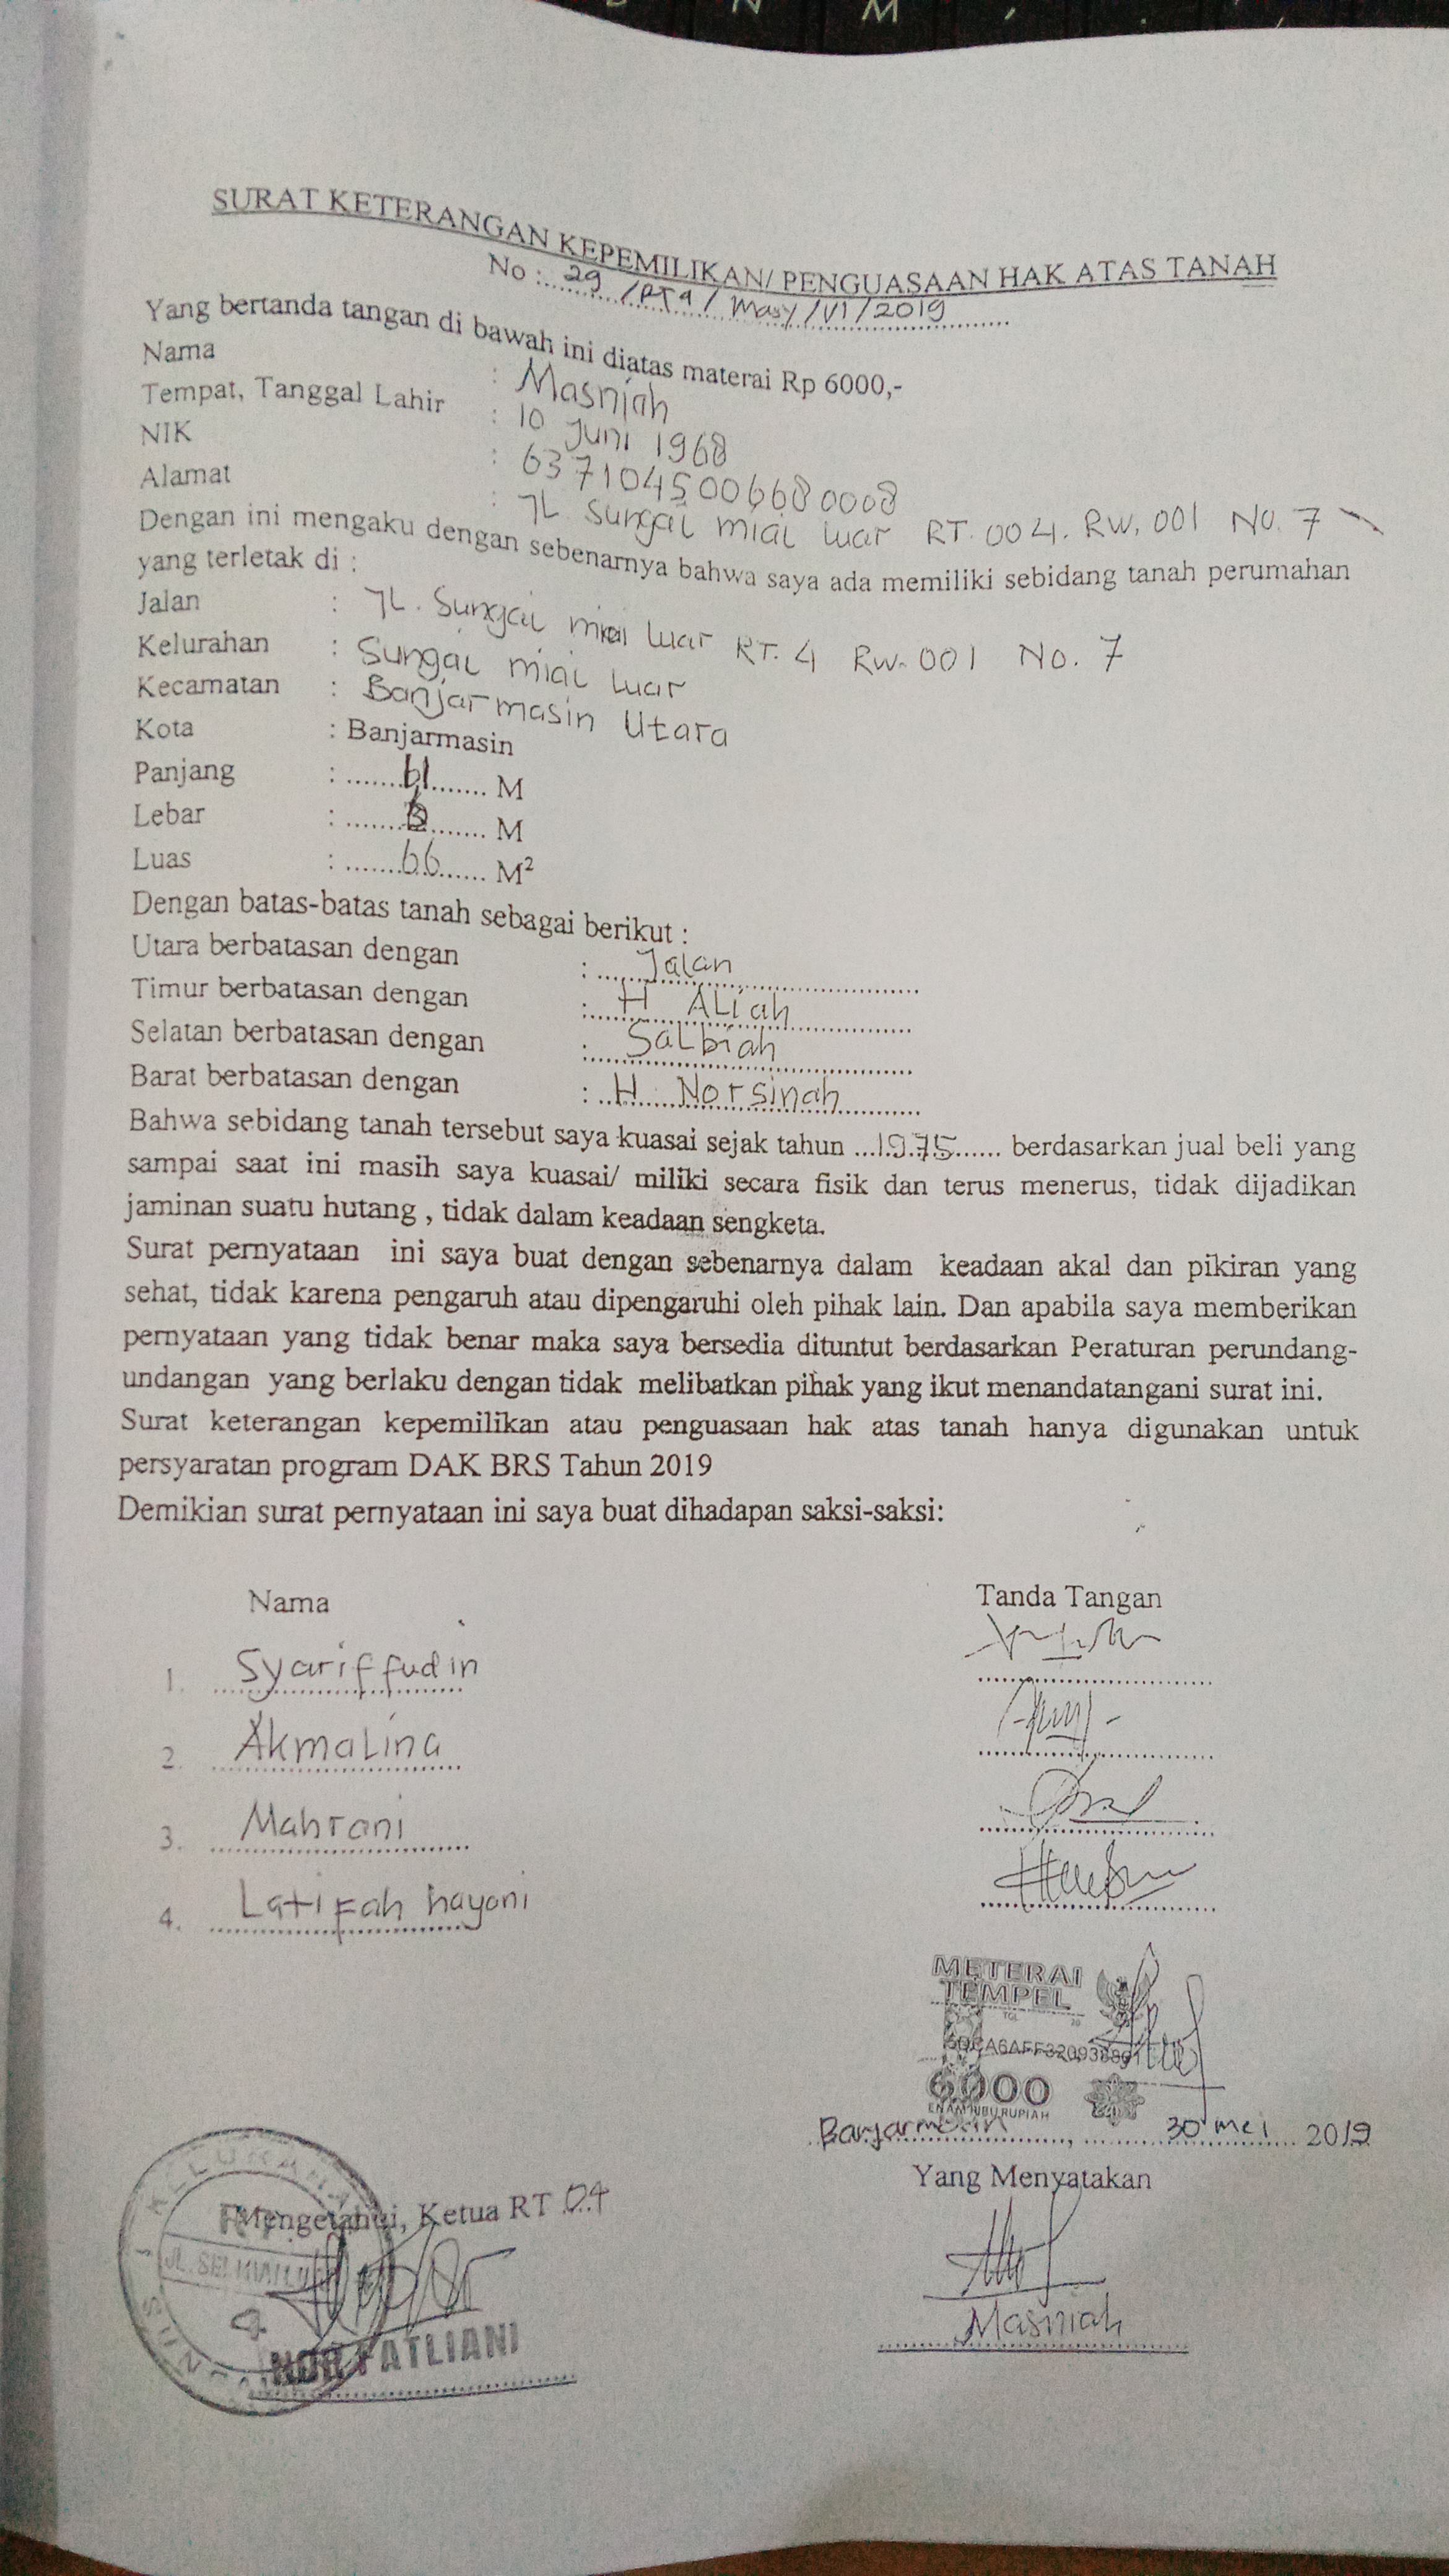 SURAT KETERANGAN KEPEMILIKAN/ PENGUASAAN HAK ATAS TANAH
No : 29 /RT4/ Masy/VI/2019
Yang bertanda tangan di bawah ini diatas materai Rp 6000,-
Nama : Masniah
Tempat, Tanggal Lahir : 10 Juni 1968
NIK : 6371045006680008
Alamat : JL Sungai miai luar RT. 004. RW. 001 No. 7
Dengan ini mengaku dengan sebenarnya bahwa saya ada memiliki sebidang tanah perumahan
yang terletak di :
Jalan : JL. Sungai miai luar RT. 4 RW. 001 No. 7
Kelurahan : Sungai miai luar
Kecamatan : Banjarmasin Utara
Kota : Banjarmasin
Panjang : M
Lebar : M
Luas : 66 M²
Dengan batas-batas tanah sebagai berikut :
Utara berbatasan dengan : Jalan
Timur berbatasan dengan : H ALiah
Selatan berbatasan dengan : SaLbiah
Barat berbatasan dengan : H. Norsinah
Bahwa sebidang tanah tersebut saya kuasai sejak tahun 1975 berdasarkan jual beli yang
sampai saat ini masih saya kuasai/ miliki secara fisik dan terus menerus, tidak dijadikan
jaminan suatu hutang , tidak dalam keadaan sengketa.
Surat pernyataan ini saya buat dengan sebenarnya dalam keadaan akal dan pikiran yang
sehat, tidak karena pengaruh atau dipengaruhi oleh pihak lain. Dan apabila saya memberikan
pernyataan yang tidak benar maka saya bersedia dituntut berdasarkan Peraturan perundang-
undangan yang berlaku dengan tidak melibatkan pihak yang ikut menandatangani surat ini.
Surat keterangan kepemilikan atau penguasaan hak atas tanah hanya digunakan untuk
persyaratan program DAK BRS Tahun 2019
Demikian surat pernyataan ini saya buat dihadapan saksi-saksi:
Nama Tanda Tangan
1. Syariffudin
2. AkmaLina
3. Mahrani
4. Latifah hayani
METERAI
TEMPEL
TGL 20
6000
ENAM RIBU RUPIAH
Banjarmasin, 30 mei 2019
Yang Menyatakan
Mengetahui, Ketua RT 04
KELURAHAN
RT
4
SUNGAI
NOR FATLIANI
Masniah